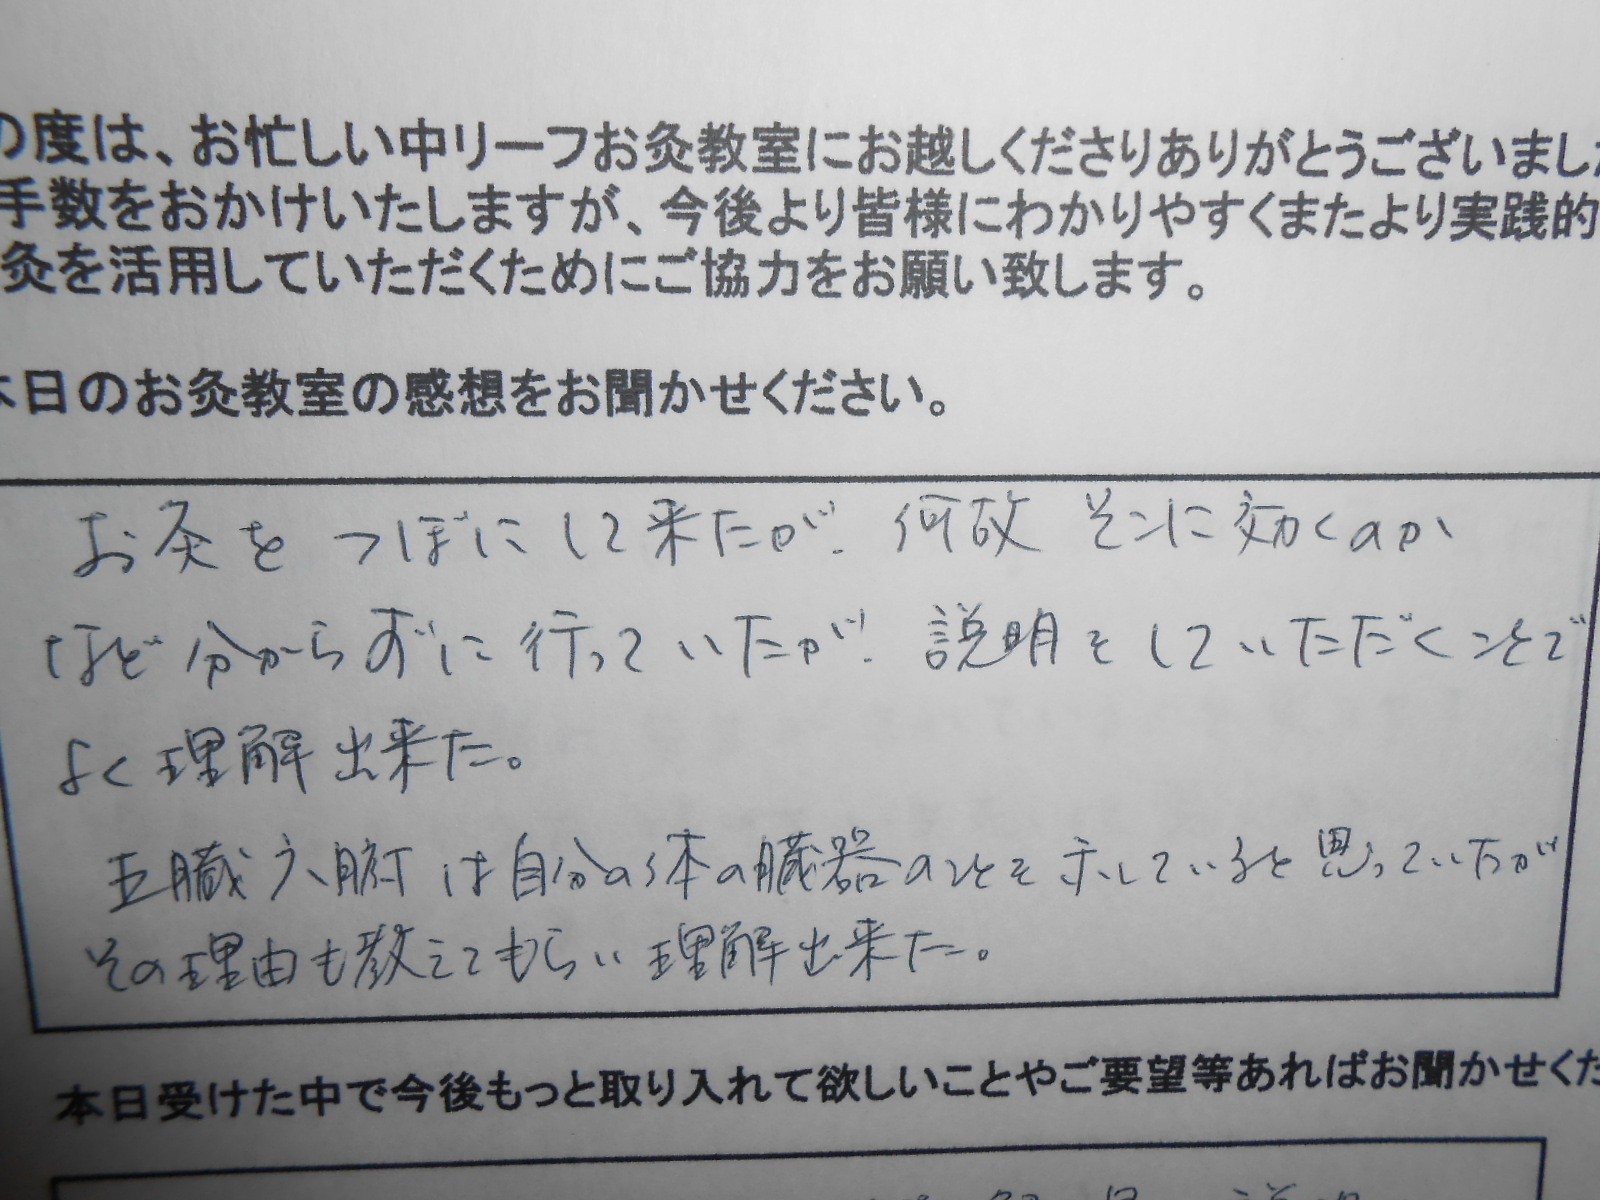 の度は、お忙しい中リーフお灸教室にお越しくださりありがとうございまし
手数をおかけいたしますが、今後より皆様にわかりやすくまたより実践的
灸を活用していただくためにご協力をお願い致します。
本日のお灸教室の感想をお聞かせください。
お灸をつぼにして来たが、何故そこに効くのか
など分からずに行っていたが、説明をしていただくことで
よく理解出来た。
五臓六腑は自分の体の臓器のことを示していると思っていたが
その理由も教えてもらい理解出来た。
本日受けた中で今後もっと取り入れて欲しいことやご要望等あればお聞かせくだ